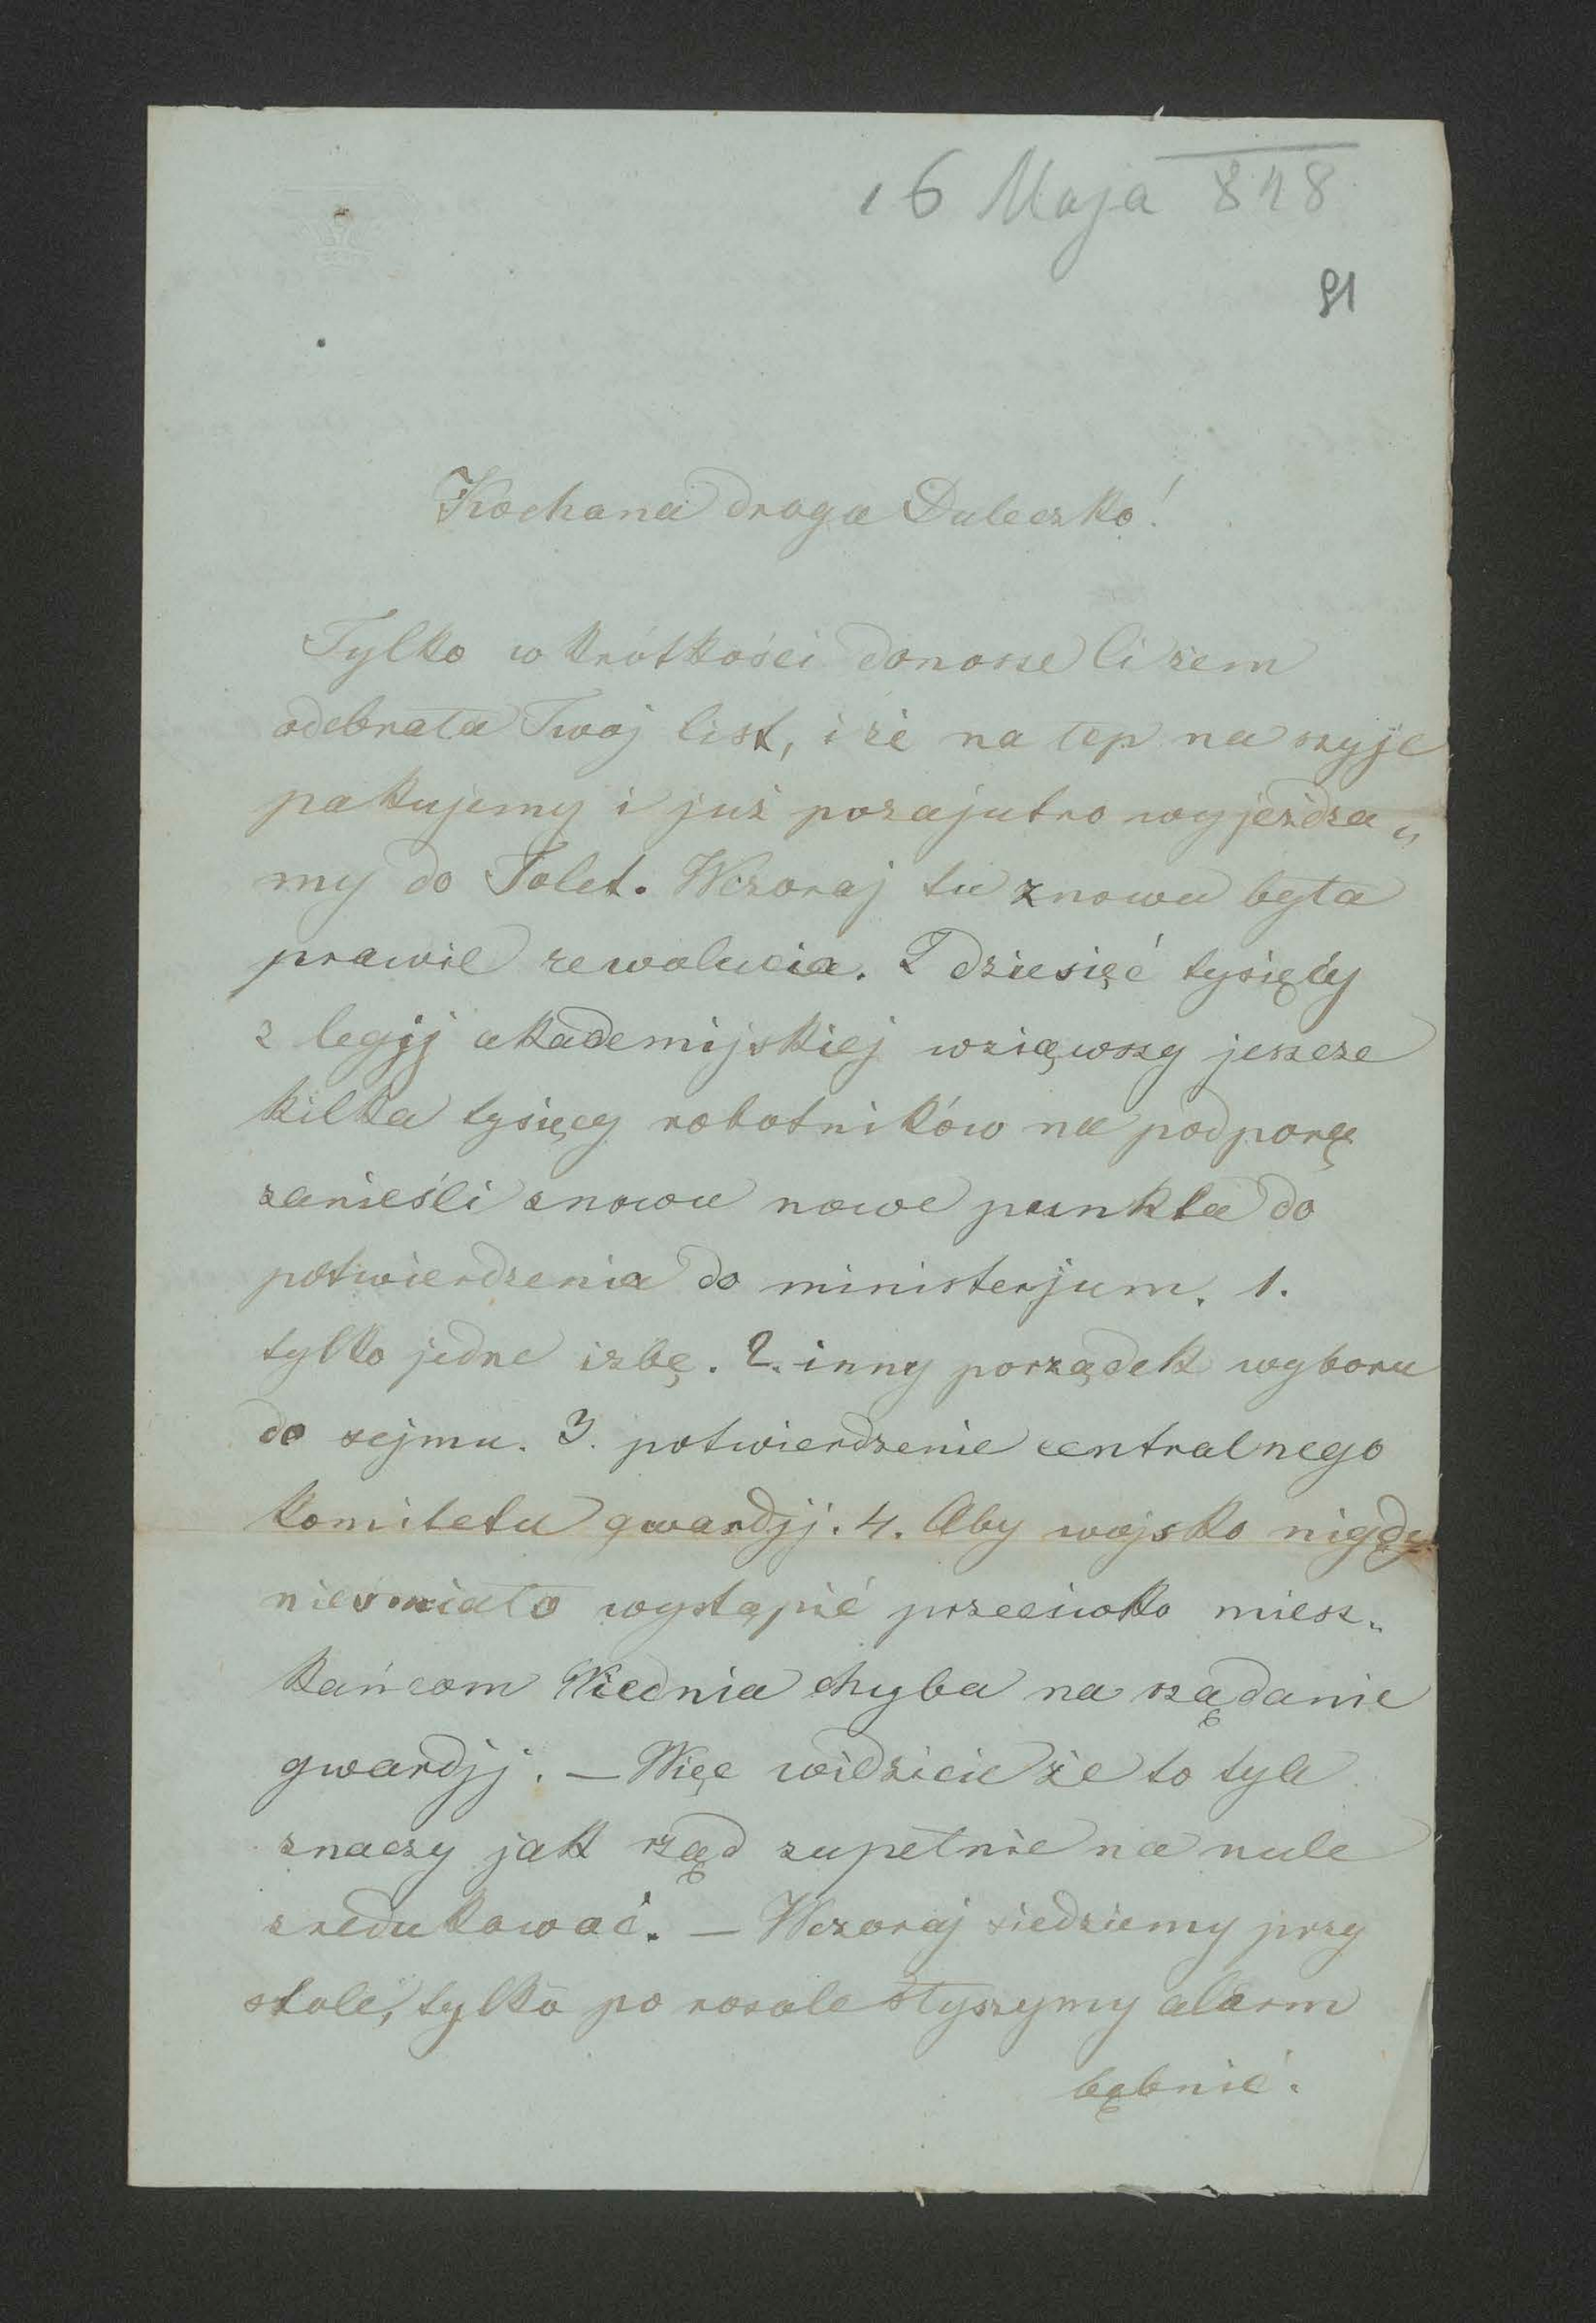 16 Maja 848
91
Kochana droga Duleczko!
Tylko w krótkości donosze Ci żem
odebrała Twoj list, i że na łep na szyje
pakujemy i już pozajutro wyjeżdza„
my do Tolet. Wczoraj tu znowu była
prawie rewolucia. Dziesięć tysięcy
z legjj akademijskiej wziąwszy jeszcze
kilka tysięcy robotników na podporę
zanieśli znowu nowe punkta do
potwierdzenia do ministerjum. 1.
tylko jedne izbę. 2. inny porządek wyboru
do sejmu. 3. potwierdzenie centralnego
komitetu gwardjj. 4. Aby wojsko nigdy
nieśmiało wystąpić przeciwko miesz„
kańcom Wiednia chyba na rządanie
gwardjj. — Więc widzicie że to tyle
znaczy jak rząd zupełnie na nule
zredukować. — Wczoraj siedziemy przy
stole, tylko po rosole słyszymy alarm
bębnić.